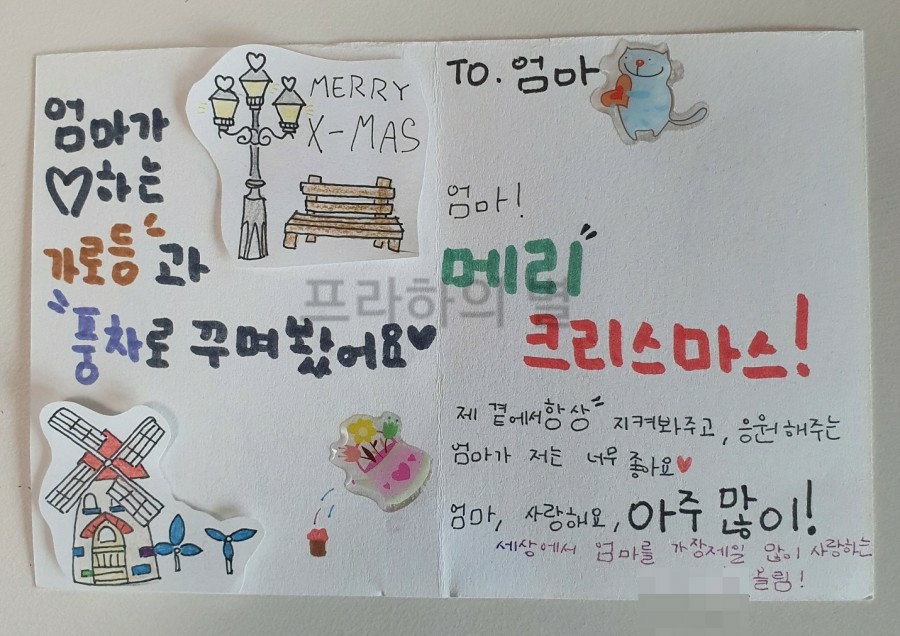 엄마가
♡하는
가로등"과
"풍차로 꾸며봤어요♥
MERRY
X-MAS
TO. 엄마
엄마!
메리"
크리스마스!
제 곁에서 항상" 지켜봐주고, 응원해주는
엄마가 저는 너무 좋아요♥
엄마, 사랑해요, 아주 많이!
세상에서 엄마를 가장제일 많이 사랑하는
올림!
프라하의 별